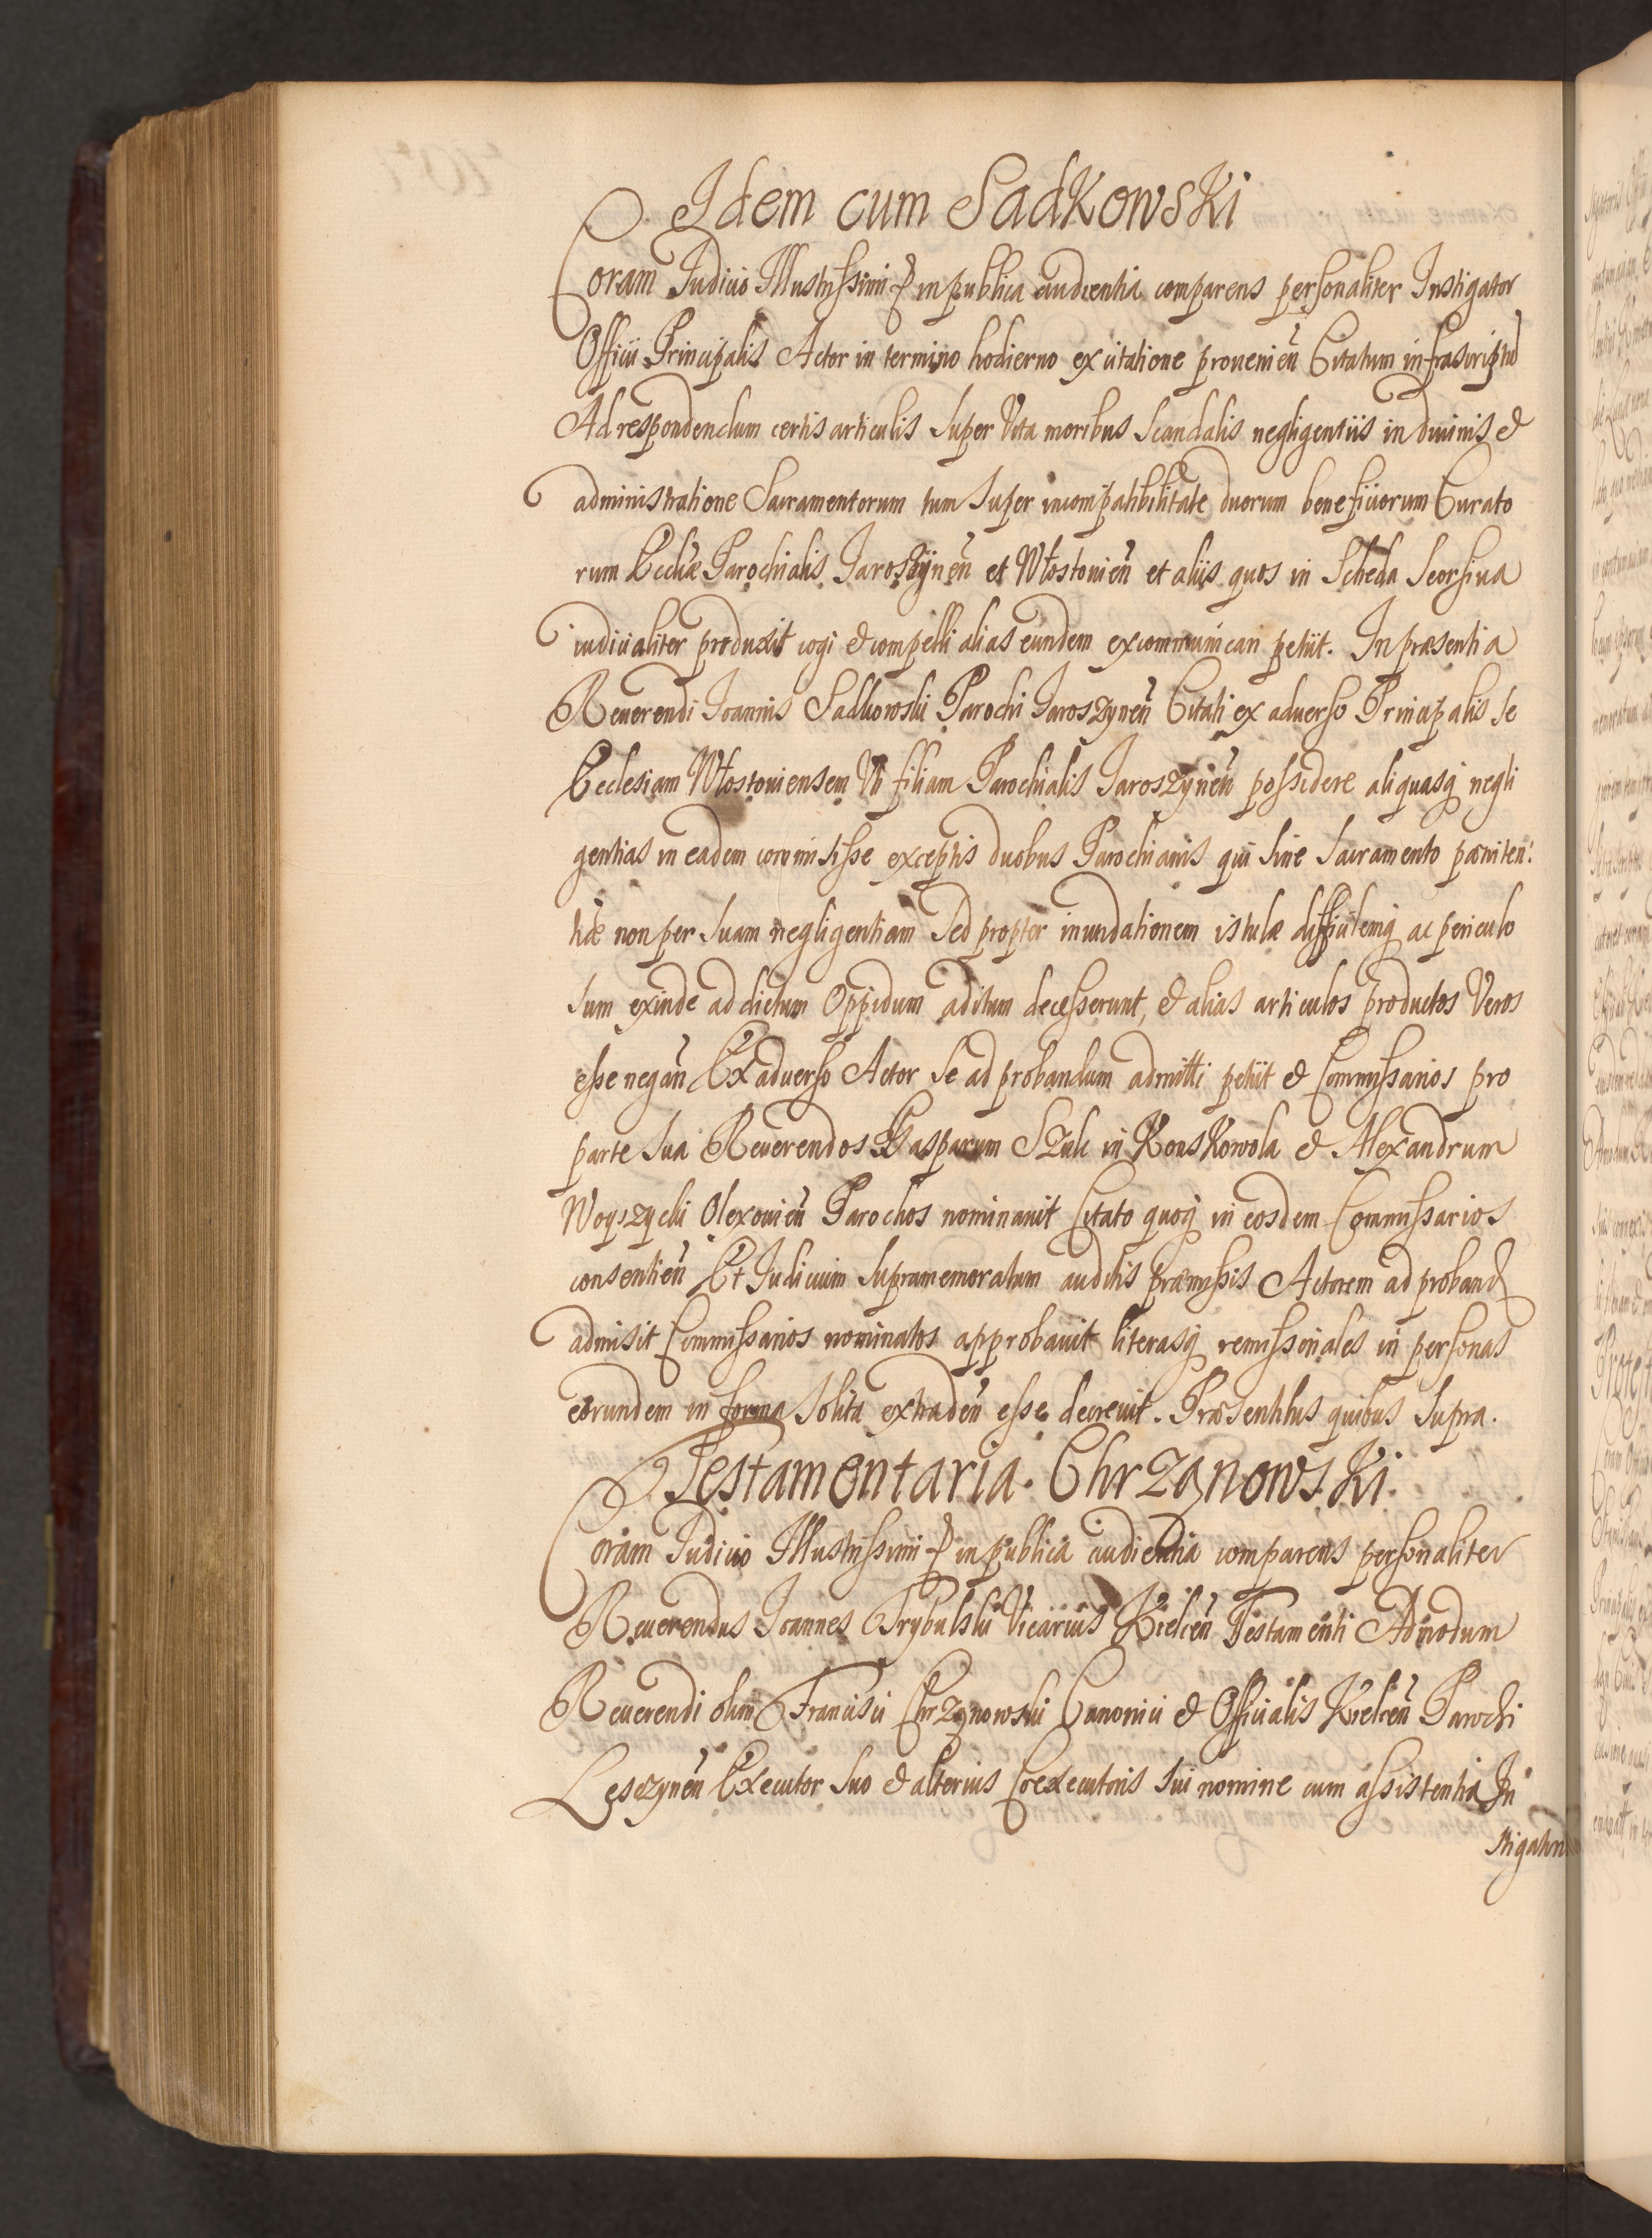 Idem cum Sadkowski
Coram Judicio Illustrissimi & in publica audientia comparens personaliter Instigator
Officii Principalis Actor in termino hodierno ex citatione provenien̄ Citatum infrascriptum
Ad respondendum certis articulis super Vita moribus scandalis negligentiis in divinis &
administratione Sacramentorum tum super incompatibilitate duorum beneficiorum Curato
rum Eccliæ Parochialis Jaroszÿnen̄ et Włostouien̄ et aliis quos in Scheda Seorsiva
iudicialiter produxit cogi & compelli alias eundem excommunicari petiit. In præsentia
Reuerendi Joannis Sadkowski Parochi Jaroszynen̄ Citati ex aduerso Principalis se
Ecclesiam Włostouiensem Vti filiam Parochialis Jaroszynen̄ possidere aliquasq negli
gentias in eadem commisisse exceptis duobus Parochianis qui sine Sacramento pœniten:
tiæ non per suam negligentiam sed propter inundationem istulæ difficilemq ac periculo
sum exinde ad dictum Oppidum aditum decesserunt, & alias articulos productos Veros
esse negan̄ Ex aduerso Actor se ad probandum admitti petiit & Commissarios pro
parte sua Reuerendos Gasparum Szulc in Konskowola & Alexandrum
Woyszycki Olexouien̄ Parochos nominauit Citato quoq in eosdem Commissarios
consentien̄ Et Judicium supramemoratum auditis præmissis Actorem ad proband
admisit Commissarios nominatos approbauit literasq remissionales in personas
eorundem in forma solita extraden̄ esse decreuit. Præsentibus quibus supra.
Testamentaria. Chrzanowski.
Coram Judicio Illustrissimi & in publica audientia comparens personaliter
Reuerendus Joannes Trybulski Vicarius Kielcen̄ Testamenti Admodum
Reuerendi olim Francisci Chrzanowski Canonici & Officialis Kielcen̄ Parochi
Lesczynen̄ Executor suo & alterius Coexecutoris sui nomine cum assistentia In
stigatoris